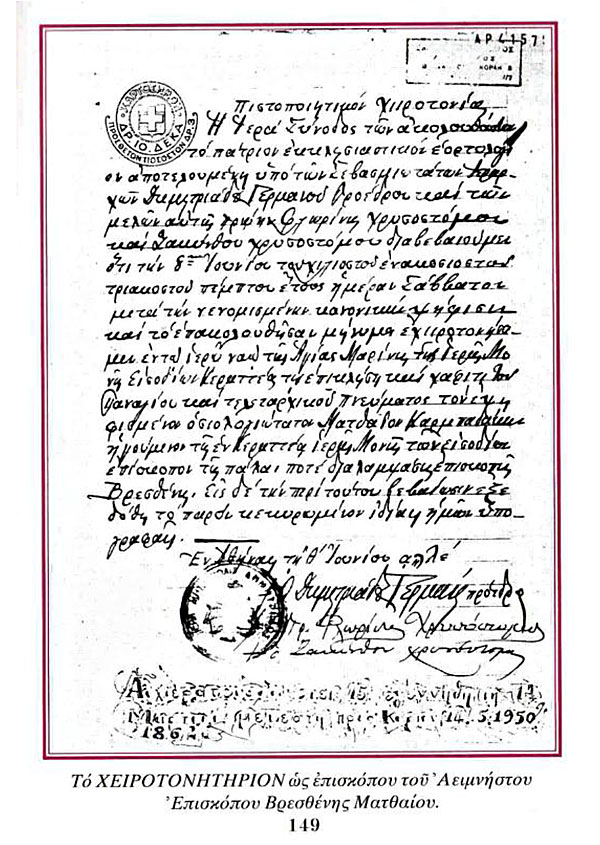 ΑΡ 4157
Πιστοποιητικόν χειροτονίας
Ἡ Ἱερά Σύνοδος τῶν ἀκολουθούντων
τό πάτριον ἐκκλησιαστικόν ἑορτολόγι
ον ἀποτελουμένη ὑπό τῶν Σεβασμιωτάτων Ἱεραρ
χῶν Δημητριάδος Γερμανοῦ Προέδρου καί τῶν
μελῶν αὐτῆς πρώην Φλωρίνης Χρυσοστόμου
καί Ζακύνθου Χρυσοστόμου διαβεβαιοῦμεν
ὅτι τήν 8ην Ἰουνίου τοῦ χιλιοστοῦ ἐνακοσιοστοῦ
τριακοστοῦ πέμπτου ἔτους ἡμέραν Σάββατον
μετά τήν νενομισμένην κανονικήν ψήφισιν
καί τό ἐπακολουθῆσαν μήνυμα ἐχειροτονήσα
μεν ἐν τῷ ἱερῷ ναῷ τῆς Ἁγίας Μαρίνης τῆς Ἱερᾶς Μο
νῆς Εἰσοδίων Κερατέας τῇ ἐπικλήσει καί χάριτι τοῦ
Παναγίου καί τελεταρχικοῦ Πνεύματος τόν ἐψη
φισμένον ὁσιολογιώτατον Ματθαῖον Καρπαθάκην
ἡγούμενον τῆς ἐν Κερατέᾳ Ἱερᾶς Μονῆς τῶν Εἰσοδίων
ἐπίσκοπον τῆς πάλαι ποτέ διαλαμψάσης ἐπισκοπῆς
Βρεσθένης. Εἰς δέ τήν περί τούτου βεβαίωσιν ἐξε
δόθη τό παρόν κεκυρωμένον ἰδίαις ἡμῶν ὑπο
γραφαῖς.
Ἐν Ἀθήναις τῇ 8ῃ Ἰουνίου αϡλέ
Ὁ Δημητριάδος Γερμανός πρόεδρος
Φλωρίνης Χρυσόστομος
Ζακύνθου Χρυσόστομος
14.5.1950
Τό ΧΕΙΡΟΤΟΝΗΤΗΡΙΟΝ ὡς ἐπισκόπου τοῦ Ἀειμνήστου
Ἐπισκόπου Βρεσθένης Ματθαίου.
149